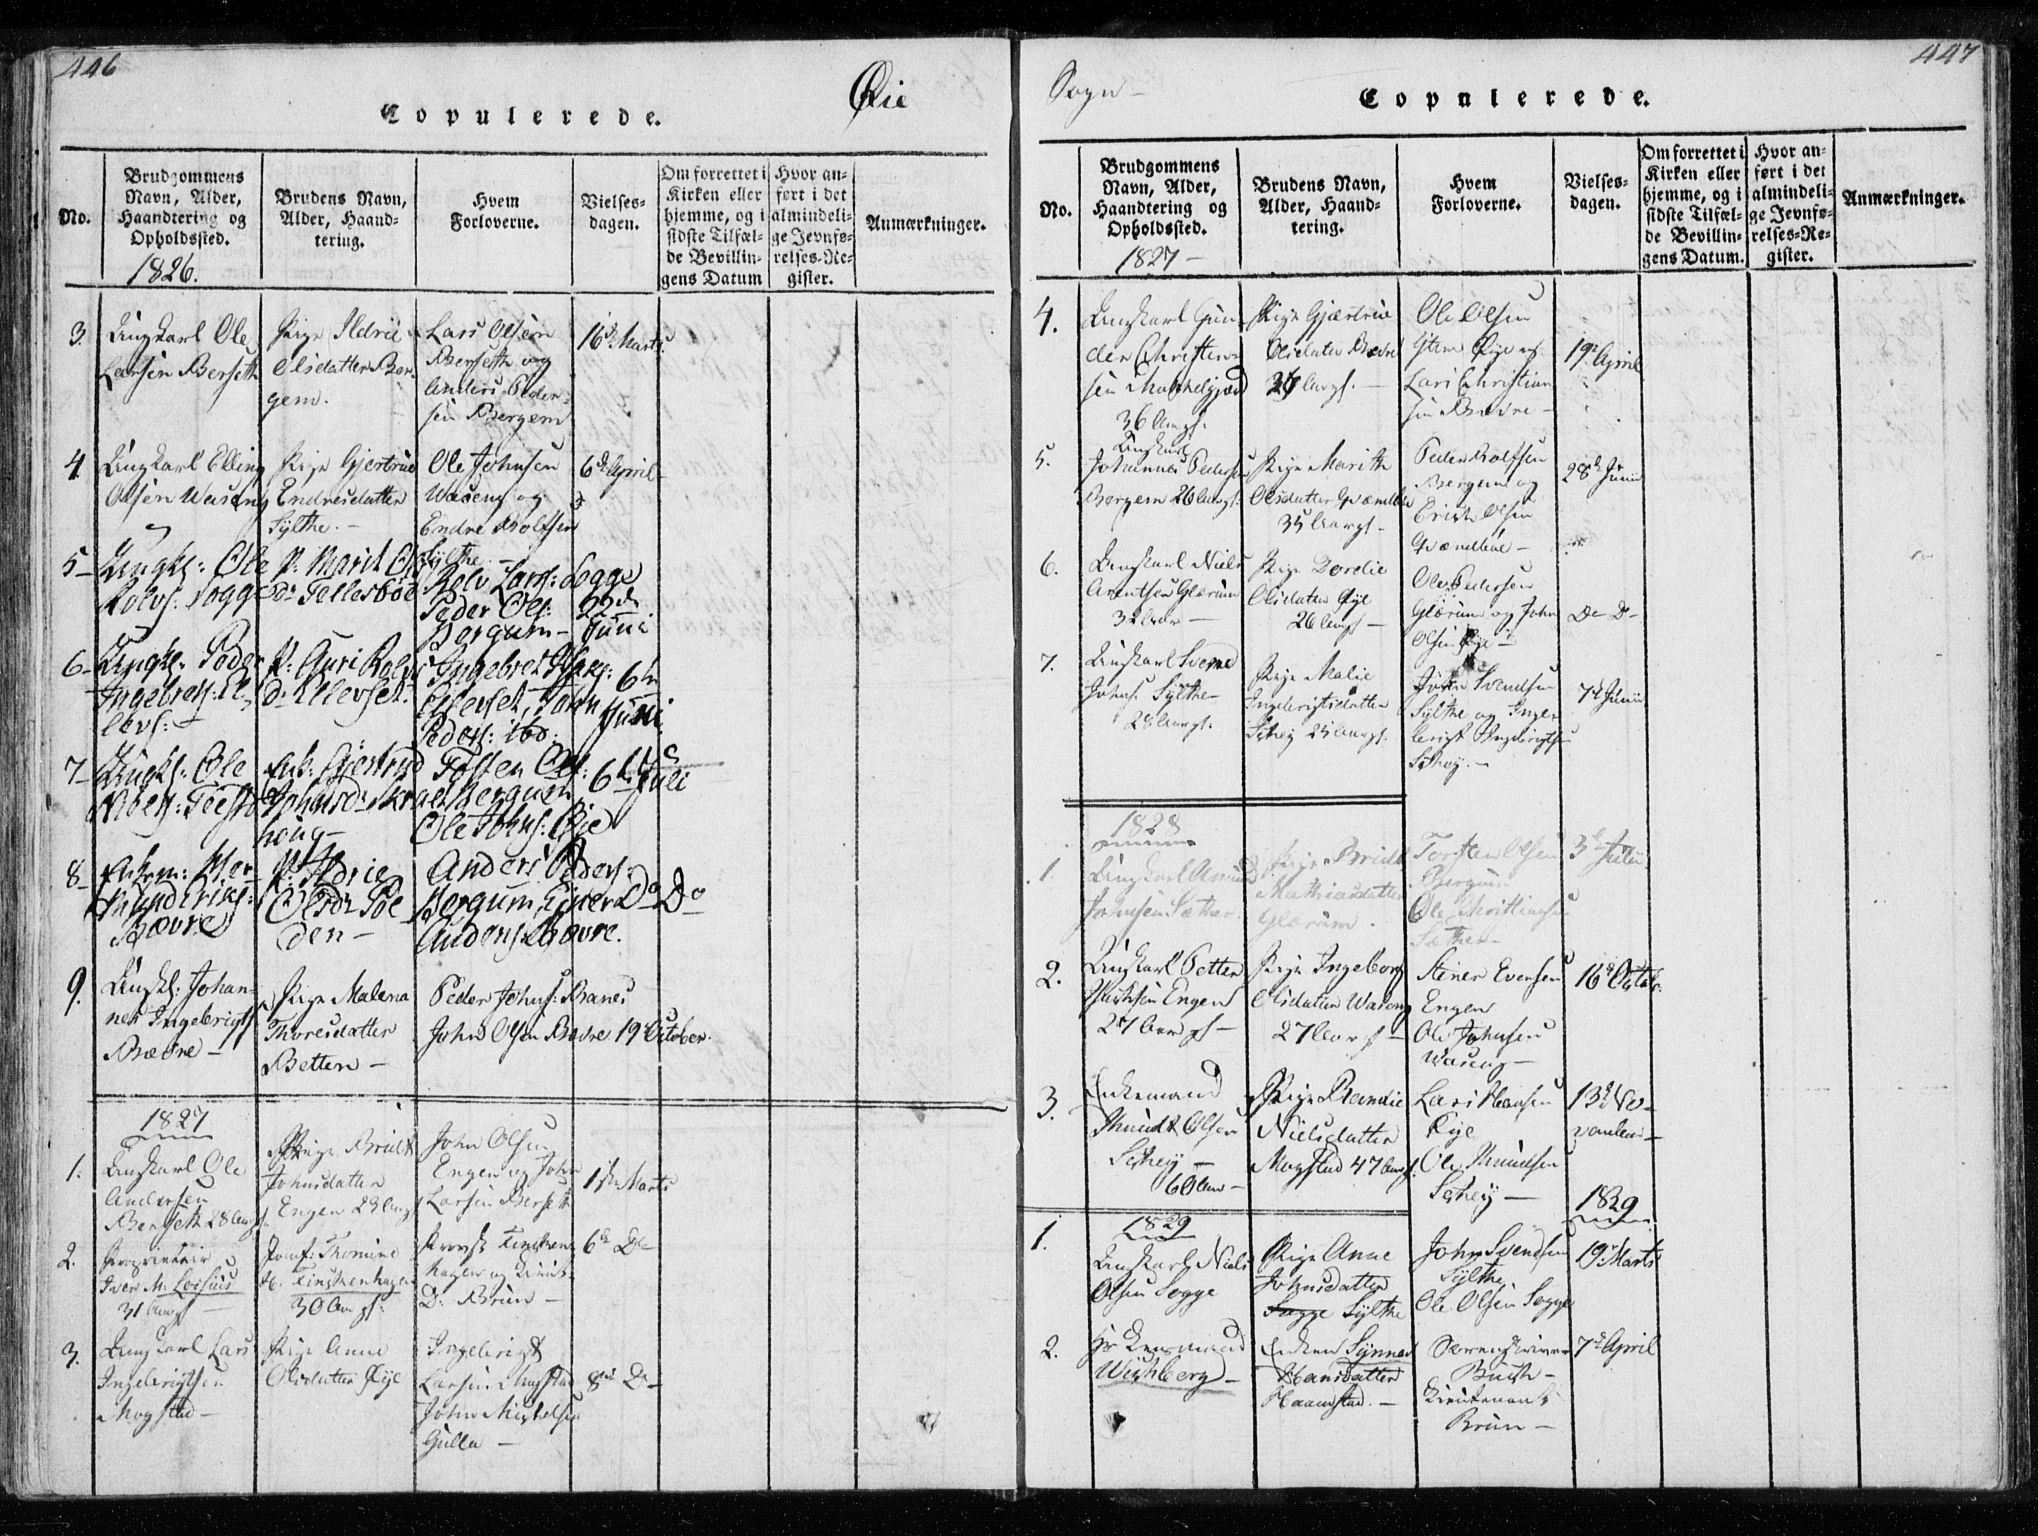 446
Øie
Copulerede.
No.
Brudgommens
Navn, Alder,
Haandtering og
Opholdssted.
1826.
Brudens Navn,
Alder, Haand-
tering.
Hvem
Forloverne.
Vielses-
dagen.
Om forrettet i
Kirken eller
hjemme, og i
sidste Tilfæl-
de Bevillin-
gens Datum
Hvor an-
ført i det
almindeli-
ge Jevnfø-
relses-Re-
gister.
Anmærkninger.
3.
Ungkarl Ole
Larsen Berseth
Pige Ildrie
Olsdatter Ber-
gem.
Lars Olsen
Berseth og
Anders Peder-
sen Bergem
16de Marts
4
Ungkarl Elling
Olsen Waseng
Pige Gjertrue
Endresdatter
Sylthe.
Ole Johnsen
Waseng og
Endre Rolfsen
Sylthe
6te April
5
Ungkl: Ole
Rolvs: Sogge
P. Marit Ols
Dr Tellesbøe
Rolv Lars: Sogge
Peder Ols:
Bergum
22de
Juni
6
Ungkl. Peder
Ingebrets: El-
levs:
P: Guri Rolvs
Dr Ellevset.
Ingebret
Ellevset, John
Peders: ibd.
6te
Juni
7
Ungkl: Ole
Enk: Gjertrud
Johnsdr
houg
Tosten Ols:
Bergum
Ole Johns: Øie
6te Juli
8
Enkem: Aer-
mund Eriks:
Bævre
P. Ildrie
Olsdr Søe
den
Anders Peders:
Bergum, Ejner
Anders: Bævre.
Do Do
9.
Ungkl. Johan-
nes Ingebrigts
Bævre
Pige Malena
Thoresdatter
Betten
Peder Johns: Banes
John Olsen Bævre
19de October.
1827
1.
Ungkarl Ole
Andersen
Berseth 28 Aar
Pige Bridt
Johnsdatter
Engen 23 Aar
John Olsen
Engen og John
Larsen Berseth
1ste Marts
2.
Proprietair
Iver M. Lossius
31 Aar
Jomf: Thomine
H. Finckenhagen
30 Aar gl.
Provst Fincken-
hagen og Lieut-
D. Brun
6te Do
3.
Ungkarl Lars
Ingebrigtsen
Mogstad
Pige Anne
Olsdatter Øye
Ingebrigt
Larsen Mogstad
John Mikkelsen
Gulla
8de Do
447
Sogn
Copulerede.
No.
Brudgommens
Navn, Alder,
Haandtering og
Opholdssted.
1827
Brudens Navn,
Alder, Haand-
tering.
Hvem
Forloverne.
Vielses-
dagen.
Om forrettet i
Kirken eller
hjemme, og i
sidste Tilfæl-
de Bevillin-
gens Datum.
Hvor an-
ført i det
almindeli-
ge Jevnfø-
relses-Re-
gister.
Anmærkninger.
4.
Ungkarl Gun-
der Christen-
sen
36 Aargl.
Pige Gjertrue
Olsdatter Bævre
Aargl.
Ole Olsen
Øye og
Lars Christian
sen Bævre
19de April
5.
Ungkarl
Johannes Pedersen
Bergem 26 Aargl.
Pige Marith
Olsdatter Qvændbøe
35 Aargl
Peder Rolfsen
Bergem og
Erich Olsen
Qvændbøe
28de Junii
6.
Ungkarl Niels
Arentsen Glærum
32 Aar
Pige Dordie
Olsdatter Øye
26 Aargl
Ole Pedersen
Glærum og John
Olsen Øye
Do Do
7.
Ungkarl Svend
Johns. Sylthe
28 Aargl.
Pige Malie
Ingebrigtsdatter
Schey 25 Aargl.
John Svendsen
Sylthe og Inge-
brigt Ingebrigtsen
Schey.
7de Junii
1828
1.
Ungkarl Amund
Johnsen Sæther
Pige Bridt
Mathiasdatter
Glærum.
Torsten Olsen
Bergum
Ole Christiansen
Sæther
3de Julii
2.
Ungkarl Petter
Engen
27 Aar gl
Pige Ingeborg
Olsdatter Waseng
27 Aar gl
Stener Evensen
Engen
Ole Johnsen
Waseng
16de Octob:
3.
Enkemand
Knudt Olsen
Schey
60 Aar
Pige Randie
Nielsdatter
Mogstad 47 Aargl.
Lars Hansen
Øye
Ole Knudsen
Schey
13de No-
vember
1829
1.
1829
Ungkarl Niels
Olsen Sogge
Pige Anne
Johnsdatter
Sogge Sylthe
John Svendsen
Sylthe
Ole Olsen Sogge
19de Marts
2.
Hr Lensmand
Wichberg
Enken Synnev
Hansdatter
Haanstad.
Sorenskriver
Busch
Lieutenant
Brun
7de April